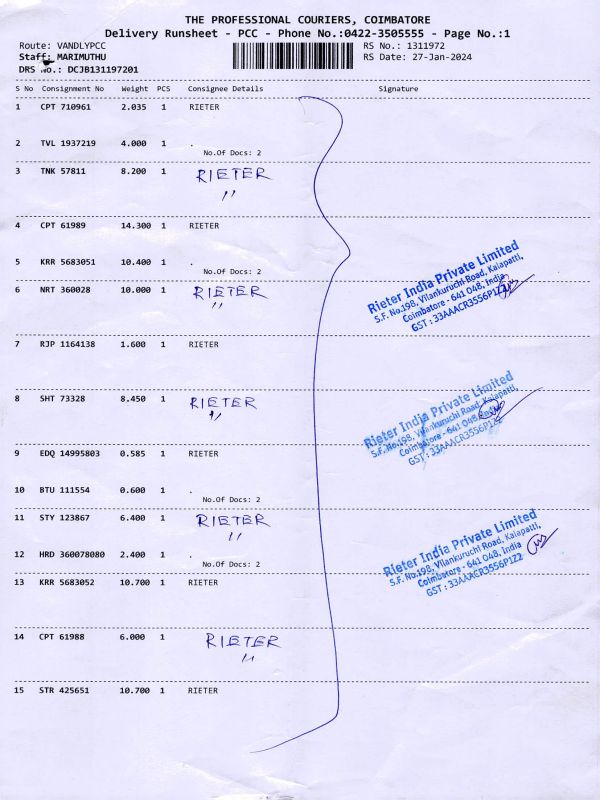 THE PROFESSIONAL COURIERS, COIMBATORE
Delivery Runsheet - PCC - Phone No.:0422-3505555 - Page No.:1
Route: VANDLYPCC RS No.: 1311972
Staff: MARIMUTHU RS Date: 27-Jan-2024
DRS No.: DCJB131197201
S No Consignment No Weight PCS Consignee Details Signature
1 CPT 710961 2.035 1 RIETER
2 TVL 1937219 4.000 1 .
No.Of Docs: 2
3 TNK 57811 8.200 1 RIETER
"
4 CPT 61989 14.300 1 RIETER
5 KRR 5683051 10.400 1 .
No.Of Docs: 2
6 NRT 360028 10.000 1 RIETER
"
Rieter India Private Limited
S.F. No.198, Vilankuruchi Road, Kalapatti,
Coimbatore - 641 048, India
GST : 33AAACR3556P1Z2
7 RJP 1164138 1.600 1 RIETER
8 SHT 73328 8.450 1 RIETER
"
Rieter India Private Limited
S.F. No.198, Vilankuruchi Road, Kalapatti,
Coimbatore - 641 048, India
GST : 33AAACR3556P1Z2
9 EDQ 14995803 0.585 1 RIETER
10 BTU 111554 0.600 1 .
No.Of Docs: 2
11 STY 123867 6.400 1 RIETER
"
12 HRD 360078080 2.400 1 .
No.Of Docs: 2
Rieter India Private Limited
S.F. No.198, Vilankuruchi Road, Kalapatti,
Coimbatore - 641 048, India
GST : 33AAACR3556P1Z2
13 KRR 5683052 10.700 1 RIETER
14 CPT 61988 6.000 1 RIETER
"
15 STR 425651 10.700 1 RIETER